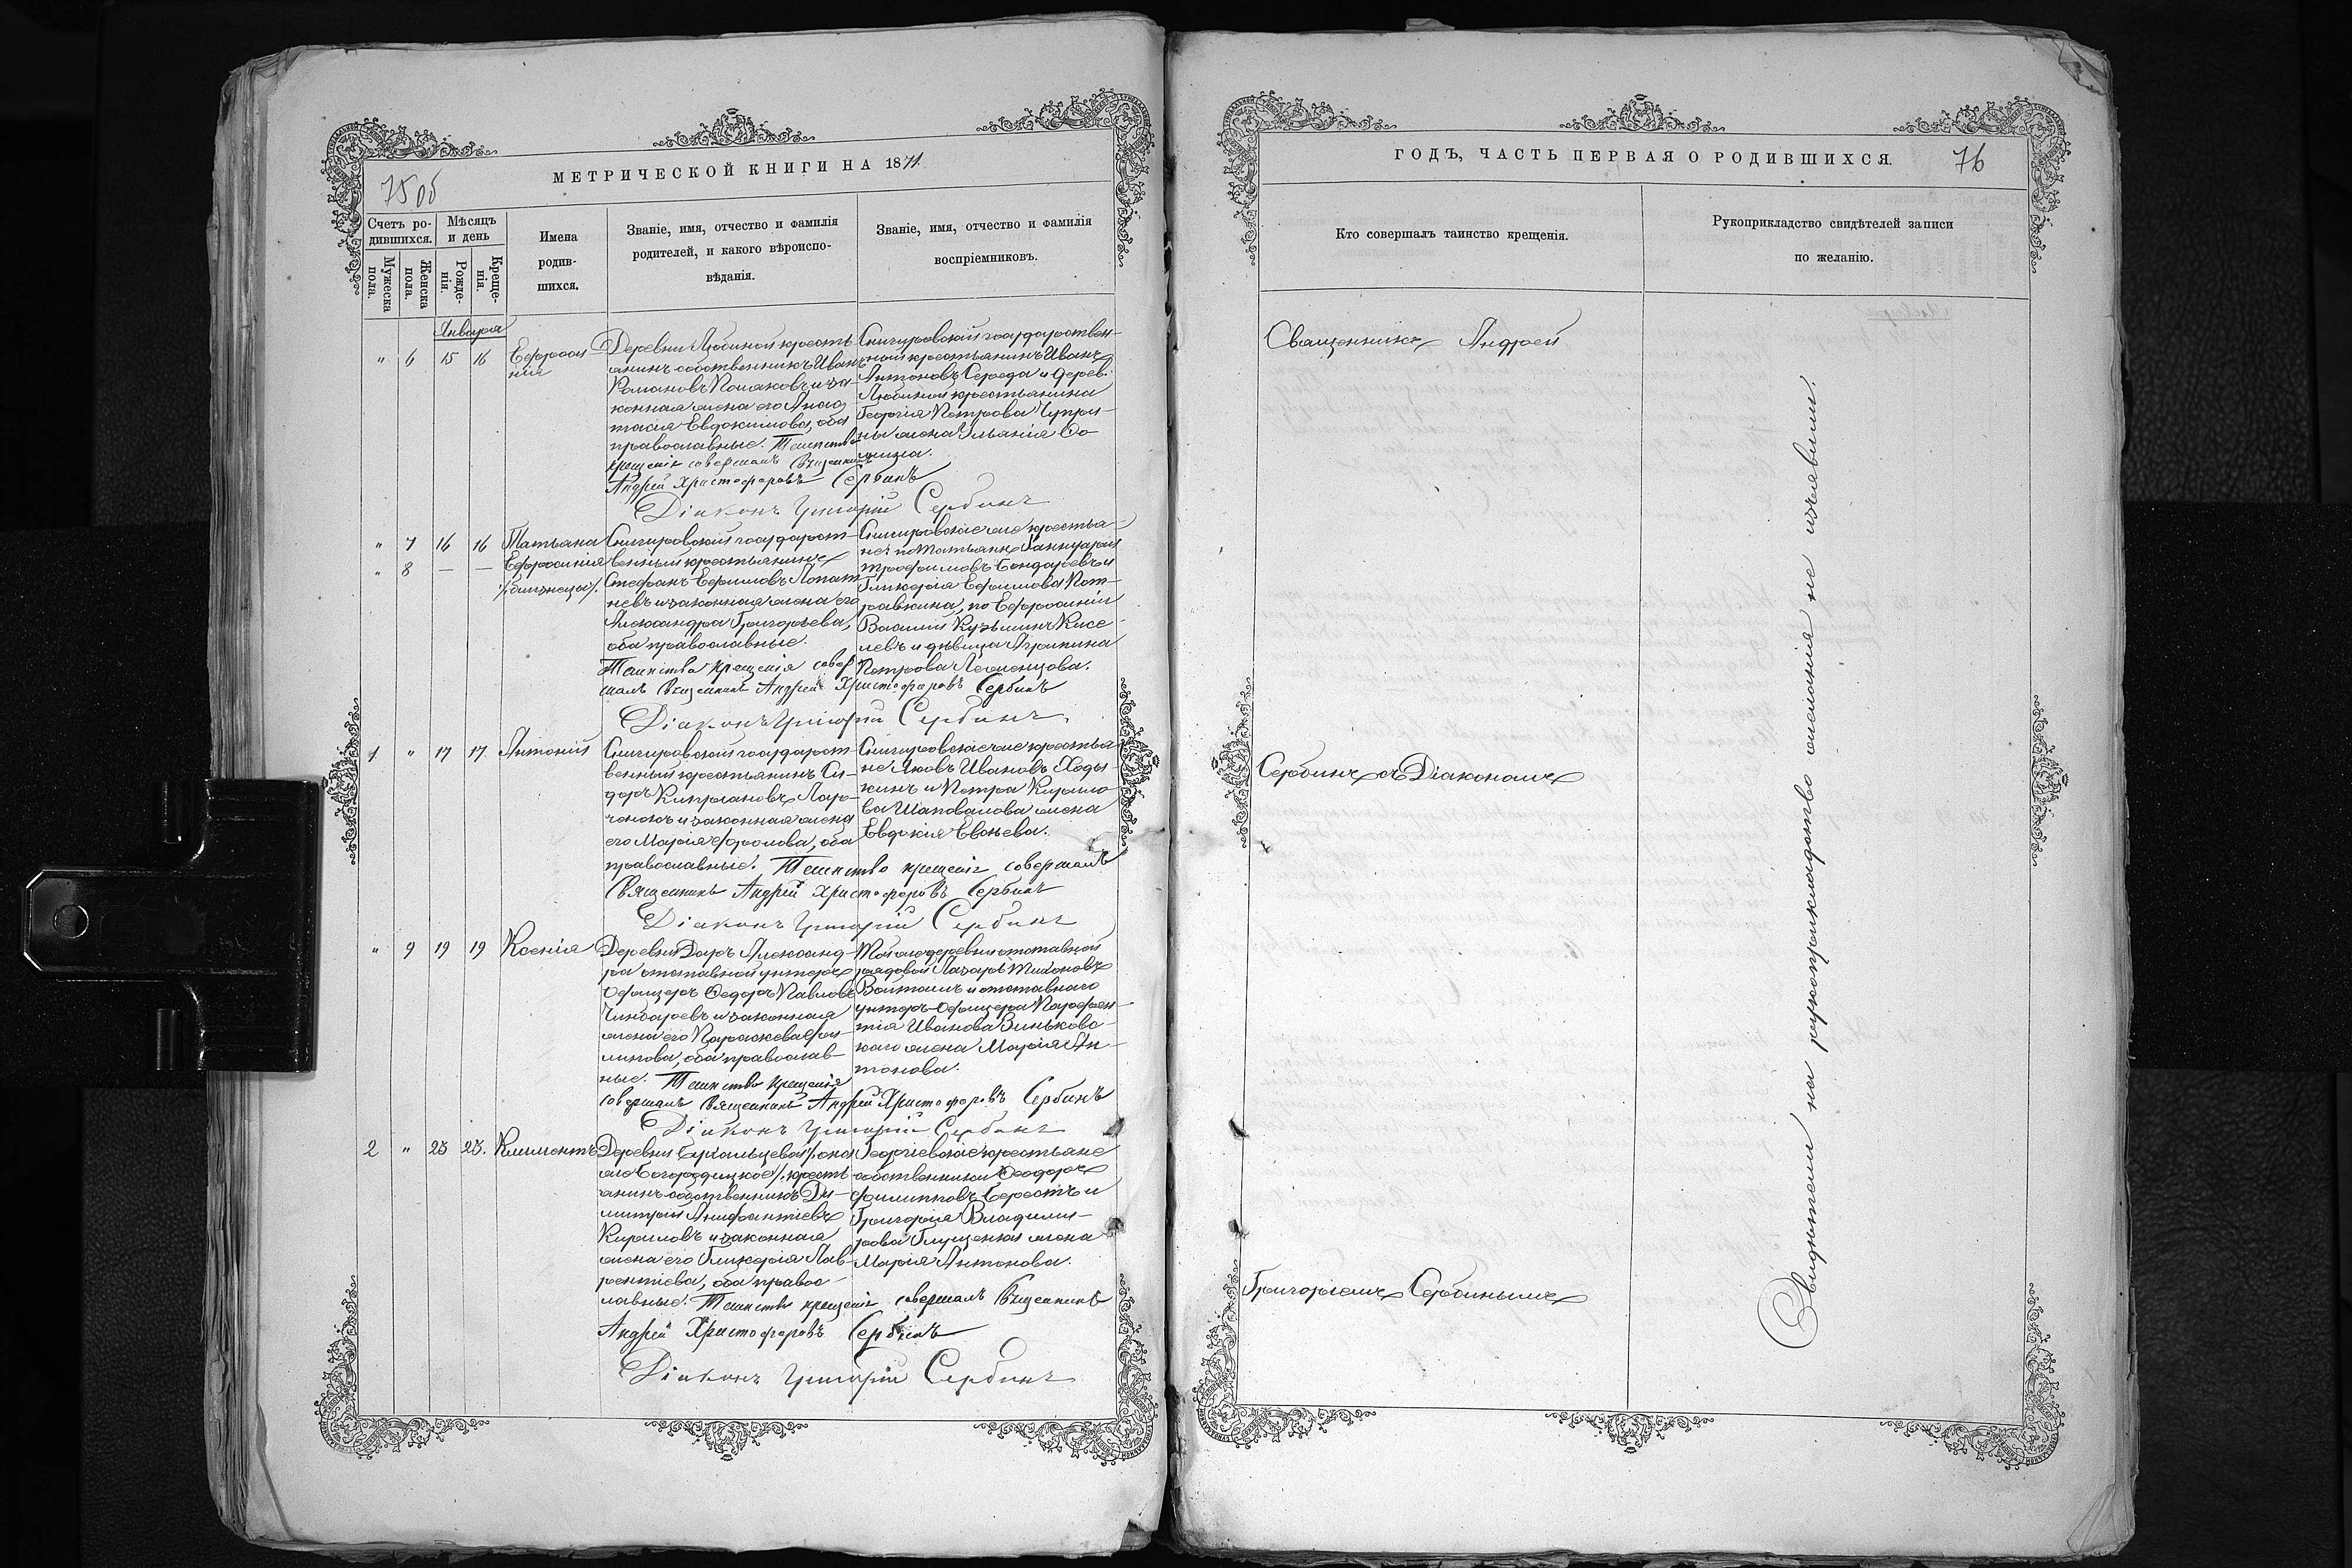 МЕТРИЧЕСКОЙ КНИГИ НА 1871
75 об
Счетъ ро-
дившихся.
Мужеска
пола.
Женска
пола.
Мѣсяцъ
и день
Рожде-
нія.
Креще-
нія.
Имена
родив-
шихся.
Званіе, имя, отчество и фамилія
родителей, и какого вѣроиспо-
вѣданія.
Званіе, имя, отчество и фамилія
воспріемниковъ.
Января
" 6 15 16
Ефроси
нія
Деревни Любиной кресть
янинъ собственникъ Иванъ
Романовъ и за-
конная жена его Анас
тасія Евдокимова, оба
православные. Таинство
крещенія совершалъ Священникъ
Андрей Христофоровъ Сербинъ
Діаконъ Григорій Сербинъ
Снигировскій государствен-
ный крестьянинъ Иванъ
Антоновъ Середа и дерев.
Любиной крестьянина
Георгія Петрова Чупри-
ны жена Ульянія Ѳо
мина.
" 7 16 16 Татьяна
" 8 — — Ефросинія
/:близнецы:/.
Снигировскій государст-
венный крестьянинъ
Стефанъ Ефимовъ Лопат
невъ и законная жена его
Александра Григорьева,
оба православные.
Таинство крещенія совер
шалъ Священникъ Андрей Христофоровъ Сербинъ
Діаконъ Григорій Сербинъ
Снигировскіе же крестья-
не: по Татьянѣ Іаннуарій
Трофимовъ Бондаревъ и
Гликерія Ефимова
по Ефросиніи
Василій Кузьминъ Кисе-
левъ и дѣвица Агрипина
Петрова
1 " 17 17 Антоній
Снигировскій государст-
венный крестьянинъ Си-
доръ Кипріановъ
и законная жена
его Марія Фролова, оба
православные. Таинство крещенія совершалъ
Священникъ Андрей Христофоровъ Сербинъ
Діаконъ Григорій Сербинъ
Снигировскіе же крестья
не Яковъ Ивановъ Ходы-
кинъ и Петра Кирило
ва Шаповалова жена
Евдокія
" 9 19 19 Ксенія
Деревни Даръ Александ-
ра отставной унтеръ
Офицеръ Ѳедоръ Павловъ
и законная
жена его Параскева Фи-
липова, оба православ-
ные. Таинство крещенія
совершалъ Священникъ Андрей Христофоровъ Сербинъ
Діаконъ Григорій Сербинъ
Той же деревни отставной
рядовой Лазарь Тихоновъ
и отставнаго
унтеръ-Офицера Парфен-
тія Иванова Зиньковс-
каго жена Марія Ан-
тонова.
2 " 25 25. Климентъ
Деревни /:она
же Богородицкое:/ кресть
янинъ собственникъ Ди-
митрій
Кириловъ и законная
жена его Гликерія Лав-
рентіева, оба правос-
лавные. Таинство крещенія совершалъ Священникъ
Андрей Христофоровъ Сербинъ
Діаконъ Григорій Сербинъ
Георгіевскіе крестьяне
собственники Ѳеодоръ
Филиповъ Берестъ и
Григорія Владими-
рова Глущенка жена
Марія Антонова.
ГОДЪ, ЧАСТЬ ПЕРВАЯ О РОДИВШИХСЯ.
76
Кто совершалъ таинство крещенія.
Рукоприкладство свидѣтелей записи
по желанію.
Священникъ Андрей
Сербинъ съ Діакономъ
Григоріемъ Сербинымъ
Свидѣтели на рукоприкладство желанія не изъявили.